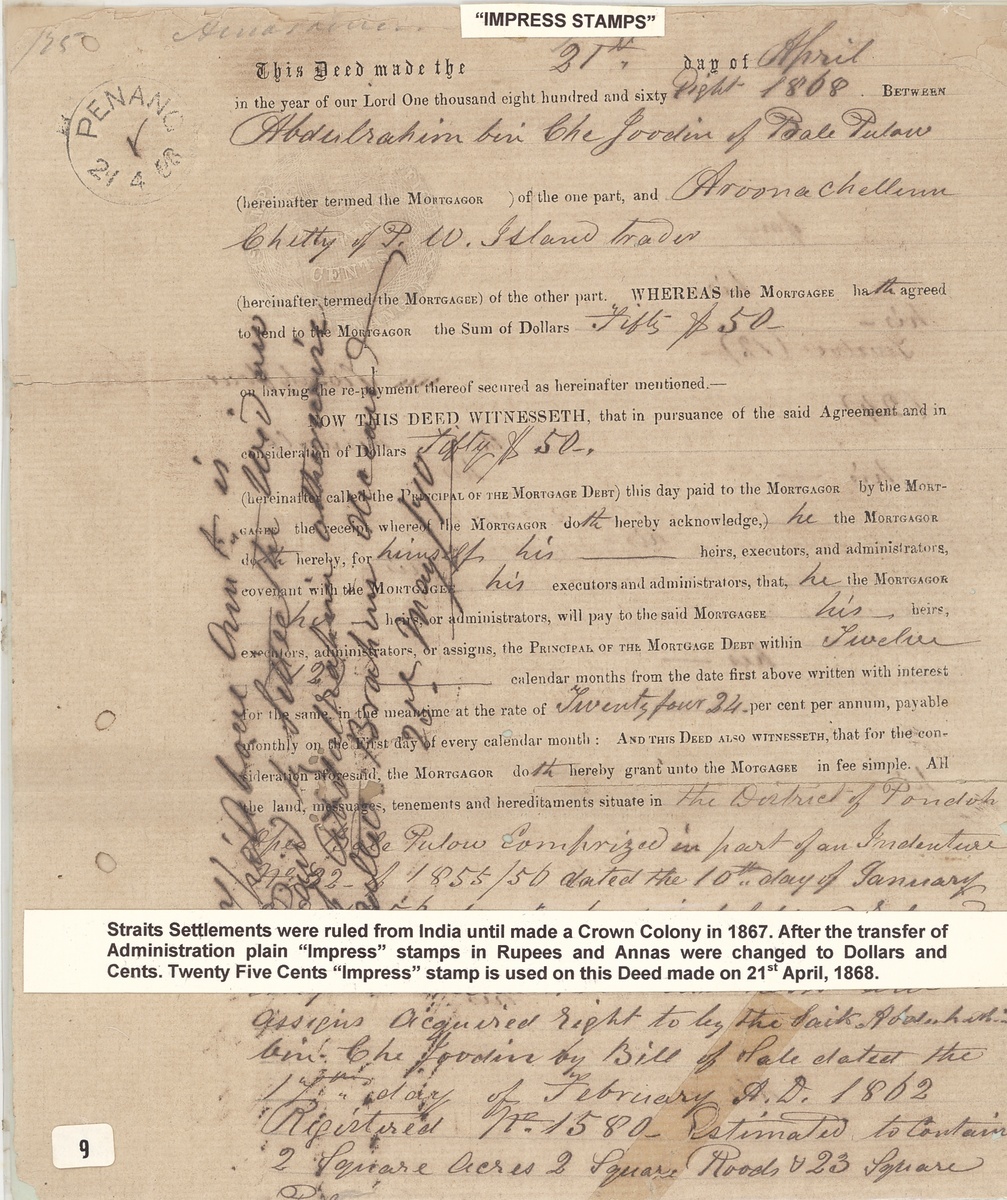 "IMPRESS STAMPS"
1250
PENANG
21 4 68
This Deed made the 21st day of April
in the year of our Lord One thousand eight hundred and sixty Eight 1868. BETWEEN
Abdulrahim bin Che Joodin of Bale Pulow
(hereinafter termed the MORTGAGOR ) of the one part, and Aroonachellum
Chetty of P. W. Island trader
CENT
(hereinafter termed the MORTGAGEE) of the other part. WHEREAS the MORTGAGEE hath agreed
to lend to the MORTGAGOR the Sum of Dollars Fifty $ 50-
on having the re-payment thereof secured as hereinafter mentioned.—
NOW THIS DEED WITNESSETH, that in pursuance of the said Agreement and in
consideration of Dollars Fifty $ 50-.
(hereinafter called the PRINCIPAL OF THE MORTGAGE DEBT) this day paid to the MORTGAGOR by the MORT-
GAGEE the receipt whereof the MORTGAGOR doth hereby acknowledge,) he the MORTGAGOR
doth hereby, for himself his heirs, executors, and administrators,
covenant with the MORTGAGEE his executors and administrators, that, he the MORTGAGOR
his heirs, or administrators, will pay to the said MORTGAGEE his heirs,
executors, administrators, or assigns, the PRINCIPAL OF THE MORTGAGE DEBT within Twelve
12 calendar months from the date first above written with interest
for the same, in the meantime at the rate of Twenty four 24 per cent per annum, payable
monthly on the First day of every calendar month : AND THIS DEED ALSO WITNESSETH, that for the con-
sideration aforesaid, the MORTGAGOR doth hereby grant unto the MOTGAGEE in fee simple. All
the land, messuages, tenements and hereditaments situate in the District of Pondoh
Pulow Comprized in part of an Indenture
1855/56 dated the 10th day of January
Straits Settlements were ruled from India until made a Crown Colony in 1867. After the transfer of
Administration plain "Impress" stamps in Rupees and Annas were changed to Dollars and
Cents. Twenty Five Cents "Impress" stamp is used on this Deed made on 21st April, 1868.
assigns Acquired right to by the Saik Abdulrahim
bin Che Joodin by Bill of Sale dated the
day of February A.D. 1862
Registered No. 1580- Estimated to Contain
2 Square Acres 2 Square Roods & 23 Square
9